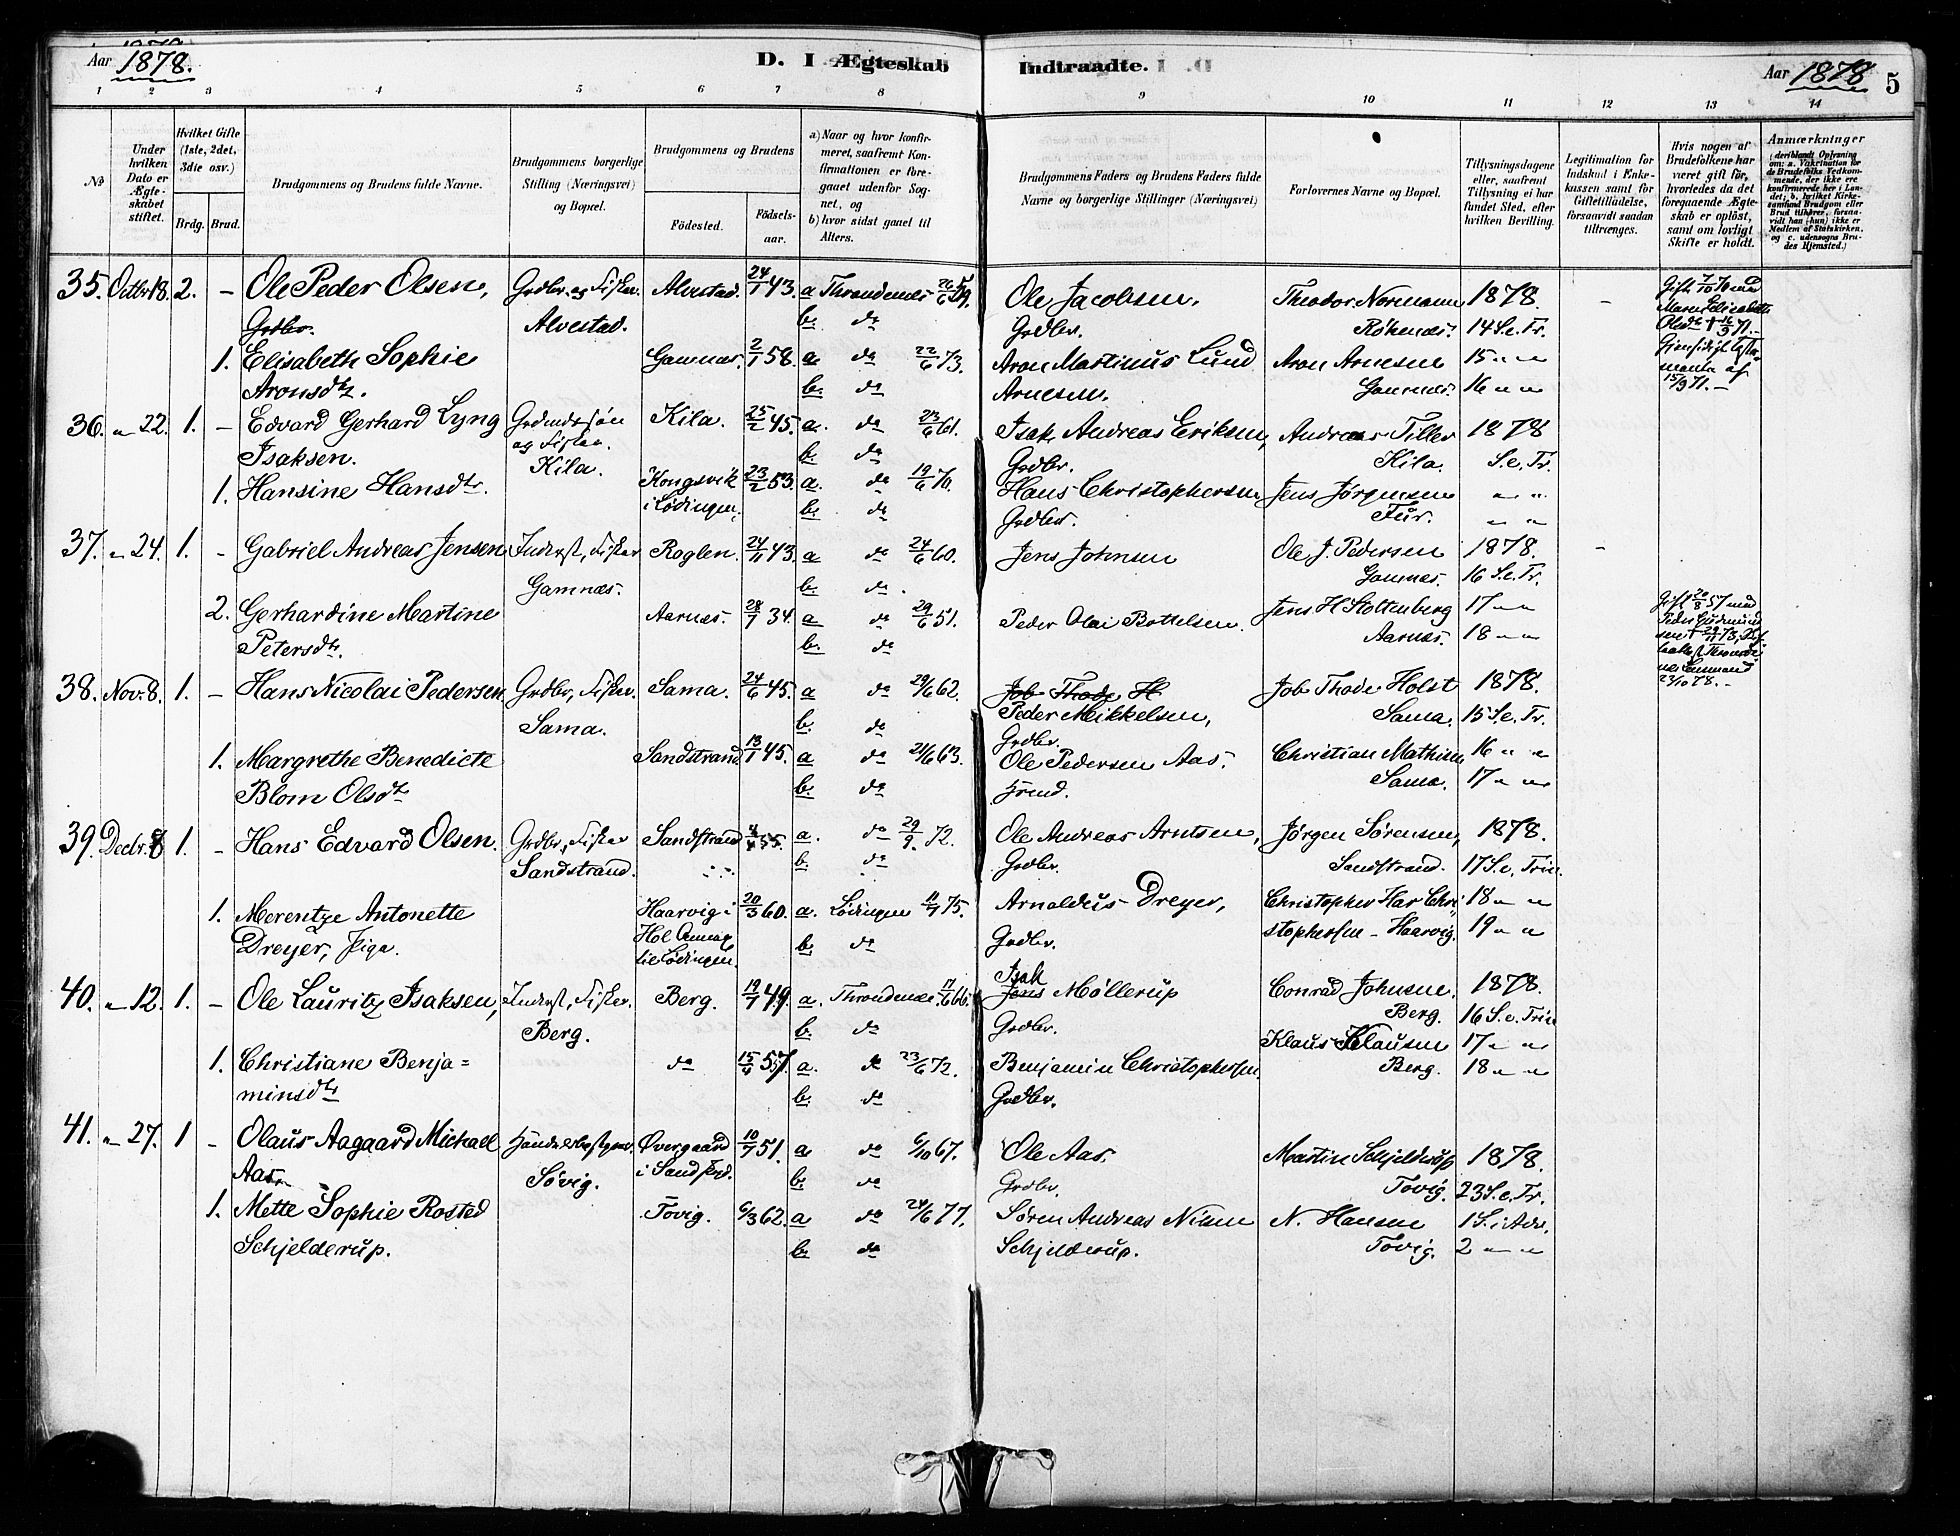 Aar 1878.
D. I Ægteskab Indtraadte.
Aar 1878 5
1 2 3 4 5 6 7 8 9 10 11 12 13 14
No
Under hvilken Dato er Ægteskabet stiftet.
Hvilket Gifte (1ste, 2det, 3die osv.)
Brdg. Brud.
Brudgommens og Brudens fulde Navne.
Brudgommens borgerlige Stilling (Næringsvei) og Bopæl.
Brudgommens og Brudens
Fødested.
Fødselsaar.
a) Naar og hvor konfirmeret, saafremt Konfirmationen er foregaaet udenfor Sognet, og
b) hvor sidst gaaet til Alters.
Brudgommens Faders og Brudens Faders fulde Navne og borgerlige Stillinger (Næringsvei)
Forlovernes Navne og Bopæl.
Tillysningsdagene eller, saafremt Tillysning ei har fundet Sted, efter hvilken Bevilling.
Legitimation for Indskud i Enkekassen samt for Giftetilladelse, forsaavidt saadan tiltrænges.
Hvis nogen af Brudefolkene har været gift før, hvorledes da det foregaaende Ægteskab er opløst, samt om lovligt Skifte er holdt.
Anmærkninger
(deriblandt Oplysning om: a. Vakcination for de Brudefolks Vedkommende, der ikke ere konfirmerede her i Landet; b. hvilket Kirkesamfund Brudgom eller Brud tilhører, forsaavidt han (hun) ikke er Medlem af Statskirken, og c. udensogns Brudes Hjemsted.)
35. Octbr 18. 2. – Ole Peder Olsen, Grdbr. og Fisker. Alvestad. 24/1 43. a Throndenes 26/6 59. Ole Jacobsen, Theodor Normann 1878 –
Gift 7/10 70 med
Grdbr. Alvestad. b. do Grdbr. Rökenæs. 14 S. e. Tr.
Maren Elisabeth Olsdtr † 16/3 71. –
1. Elisabeth Sophie Gamnæs. 2/1 58. a. do 22/6 73. Aron Martinus Lund Aron Arnesen 15 " "
Gjensidigt Testamente af 15/9 71. –
Aronsdtr. b. do Arnesen. Gamnæs. 16 " "
36. " 22. 1. – Edvard Gerhard Lyng Grdmdssøn Kila. 25/2 45. a. do 23/6 61. Isak Andreas Eriksen, Andreas Tiller 1878
Isaksen. og Fisker. Kila. b. do Grdbr. Kila. S. e. Tr.
1. Hansine Hansdtr. Kongsvik 23/2 53. a. do 19/6 70. Hans Christophersen Jens Jörgensen " "
i Lødingen. b. do Grdbr. Fur. " "
37. " 24. 1. – Gabriel Andreas Jensen Inderst, Fisker Roglen. 24/11 43. a do 24/6 60. Jens Johnsen Ole J. Pedersen 1878. –
Gamnæs. b. do. Gamnes. 16 S. e. Tr.
2. Gerhardine Martine Aarnæs. 28/7 34. a do 29/6 51. Peder Olai Bottelsen. Jens H Stoltenberg 17 " "
Gift 20/8 57 med
Petersdtr. b. do Aarnæs. 18 " "
23/10 78. –
38. Nov. 8. 1. – Hans Nicolai Pedersen Grdbr, Fisker. Sama. 24/6 45. a do 29/6 62. Job Thode H Job Thode Holst 1878.
Sama. b. do Peder Mikkelsen, Sama. 15 S. e. Tr.
Grdbr.
1. Margrethe Benedicte Sandstrand 13/1 45. a do 21/6 63. Ole Pedersen Aas. Christian Mathisen 16 " "
Blom Olsdtr b. do Hsmd. Sama. 17 " "
39. Decbr. 8 1. – Hans Edvard Olsen. Grdbr, Fisker Sandstrand 4/4 55. a. do 29/9 72. Ole Andreas Arntsen, Jörgen Sörensen, 1878.
Sandstrand. b. do Grdbr. Sandstrand. 17 S. e. Trin.
1. Merentze Antonette Haarvig i 20/3 60. a. Lødingen 11/7 75. Arnoldus Dreyer, Christopher Har Chri- 18 " "
Dreyer, Pige. Hol Annex til Lødingen. b. do Grdbr. stophersen – Haarvig. 19 " "
40. " 12. 1. – Ole Lauritz Isaksen, Inderst, Fisker. Berg. 19/7 49. a. Throndenes. 17/6 66. Isak Jens Møllerup Conrad Johnsen. 1878.
Berg. b. do Grdbr. Berg. 16 S. e. Trin
1. Christiane Benja= do 15/6 57. a. do 23/6 72. Benjamin Christophersen. Klaus Klausen 17 " "
minsdtr b. do Grdbr. Berg. 18 " "
41. " 27. 1 – Olaus Aagaard Michael Søvig. Øvergaard 10/7 51. a do 6/10 67. Ole Aas. Martin Schjelderup 1878.
Aas. i Sandtorg. b. do Grdbr. Tovig. 23 S. e. Tr.
1. Mette Sophie Rosted Tovig. 6/3 62. a do 24/6 77. Søren Andreas Nilsen N. Hansen 1 S. i Adv.
Schjelderup. b. do Schjelderup. Tovig. 2 " "